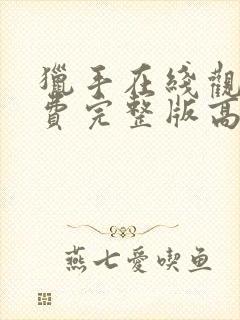 獵手在綫觀
費完整版高
燕七愛喫鱼